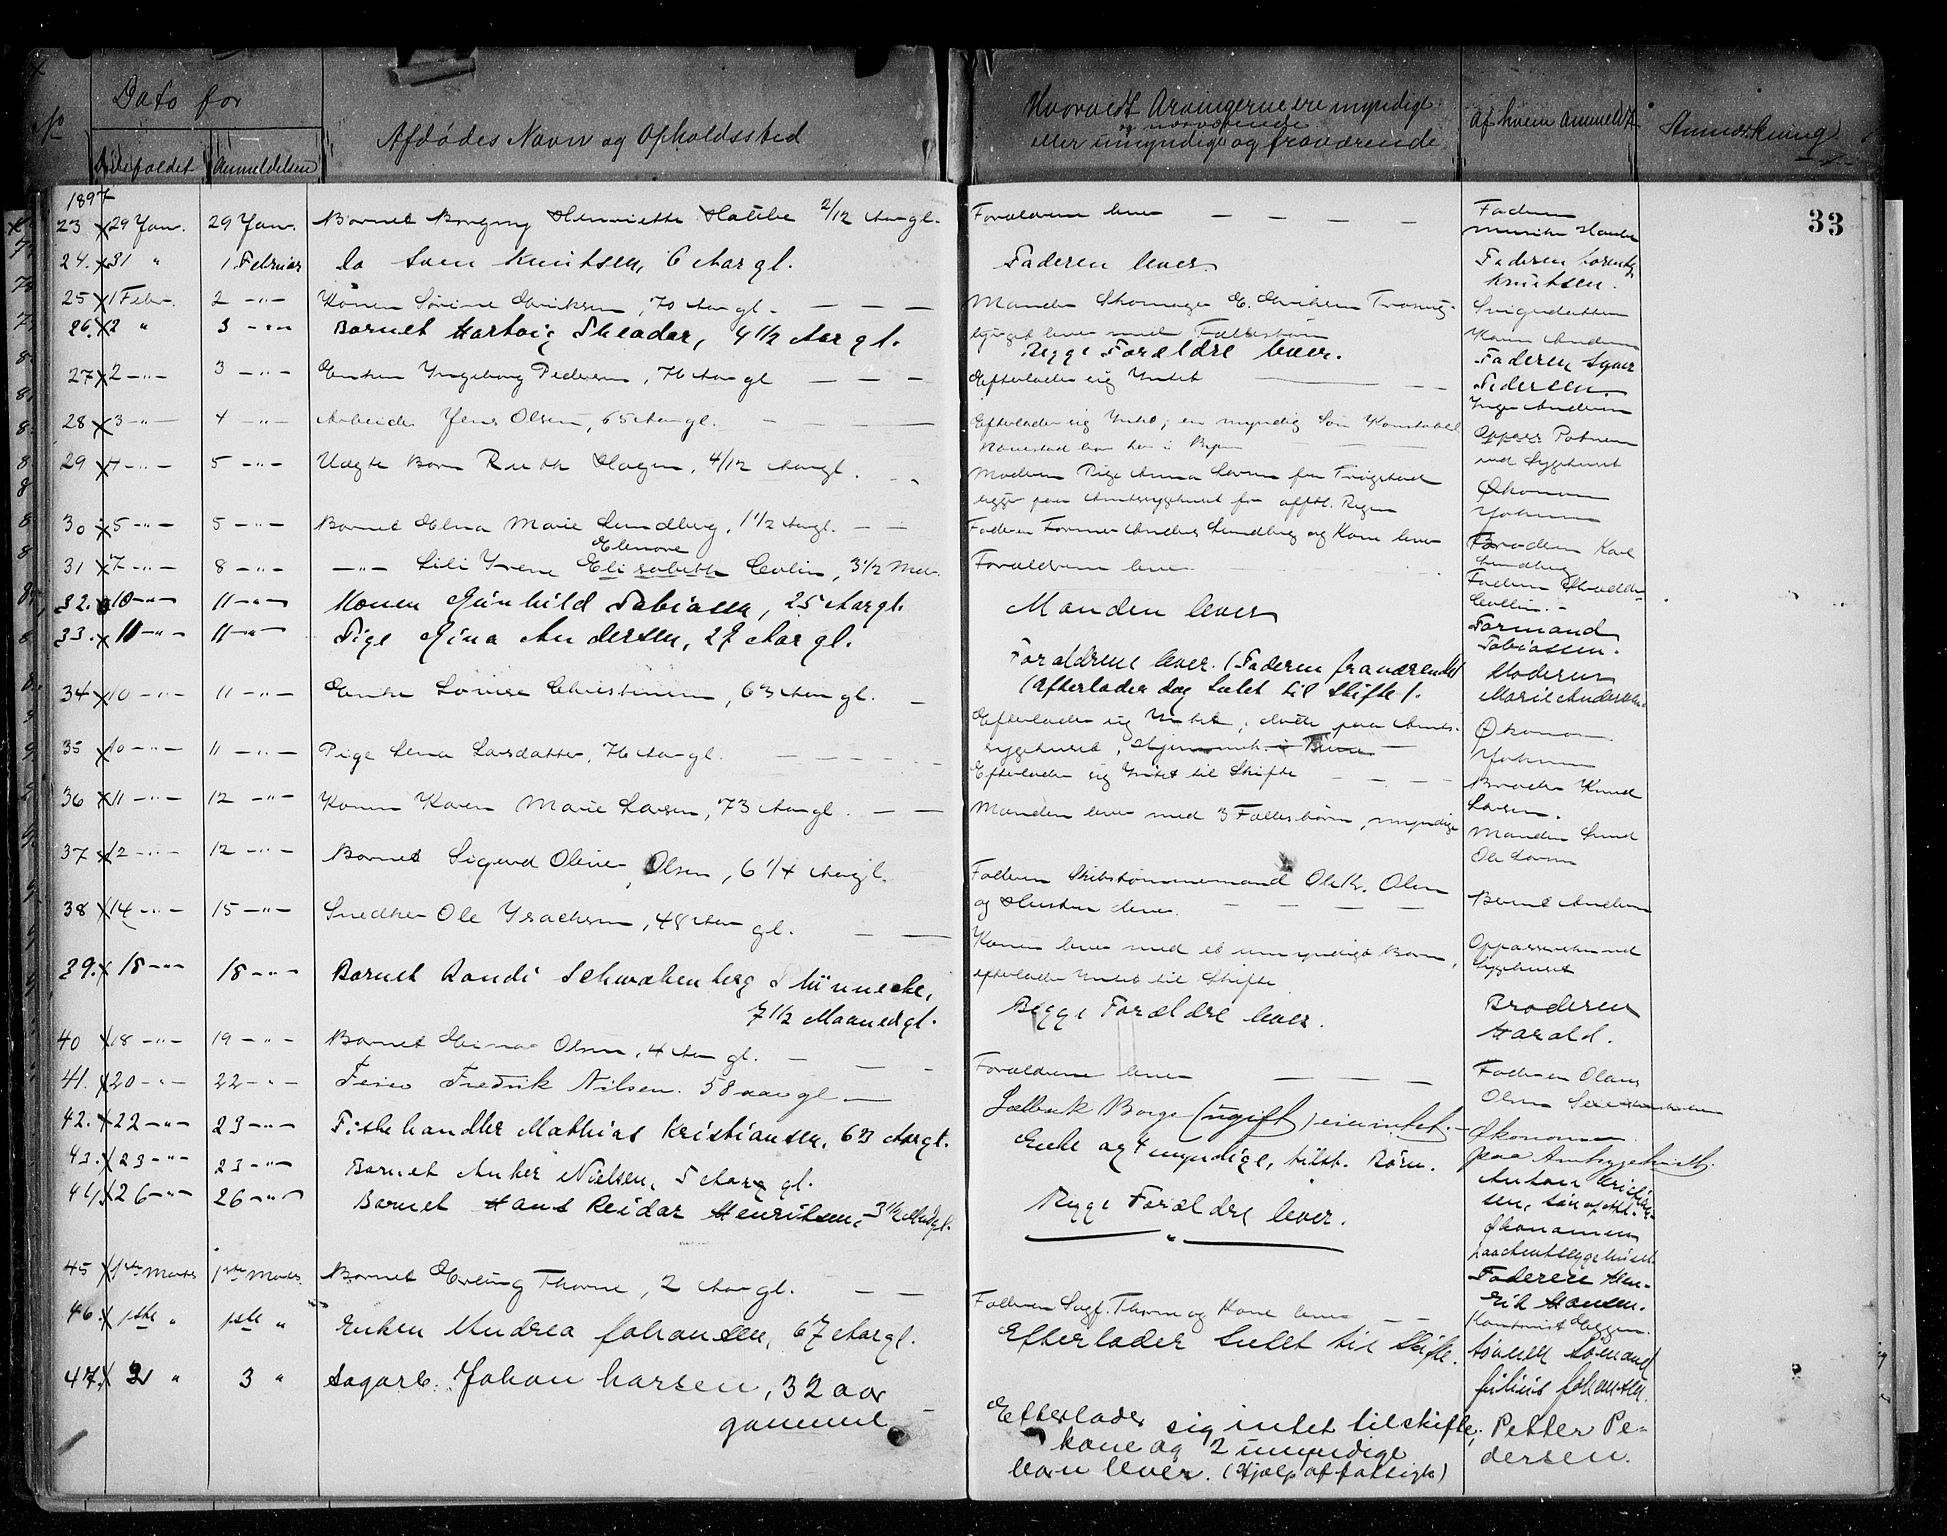 No
Dato for
Dødsfaldet
Anmeldelsen
Afdødes Navn og Opholdssted
Hvorvidt Arvingerne ere myndige
og nærværende
eller umyndige og fraværende
af hvem anmeldt
Anmærkning
33
1897
23 29 Jan. 29 Jan. Barnet Borgny Henriette 2/12 Aar gl. Forældrene lever Faderen
24. 31 " 1. Februar Do Sven Knutsen, 6 Aar gl. Faderen lever Faderen Lorentz
Knutsen.
25 1 Febr. 2 -"- Konen Sørine Eriksen, 70 Aar gl. Manden Skomager E. Eriksen
lever med Fællesbørn
Svigerdatteren
Karen Andersen
26. 2 " 3 -"- Barnet Hartvig Theodor, 4 1/2 Aar gl. Begge Forældre lever. Faderen Syver
Pedersen.
27 2 -"- 3 -"- Enken Ingeborg Pedersen, 76 Aar gl Efterlader sig Intet Inga Andersen
28 3 -"- 4 -"- Arbeider Jens Olsen, 65 Aar gl. Efterlader sig Intet; en myndig Søn Konstabel
bor her i Byen
ved Sygehuset
29 4 -"- 5 -"- Uægte Barn Ruth Hagen, 4/12 Aar gl. Moderen Pige Anna Larsen fra Trøgstad
ligger paa Amtssygehuset for offtl. Regn
Økonom
30 5 -"- 5 -"- Barnet Elna Marie Lundberg, 1 1/2 Aar gl. Faderen Former Anders Lundberg og Kone lever Broderen Karl
Lundberg
31 7 -"- 8 -"- -"- Lili Irene Elisabeth Collin, 3 1/2 Mdr. Forældrene lever Faderen
Elenore
Collin.
32. 10 -"- 11 -"- Konen Gunhild Tobiassen, 25 Aar gl. Manden lever Formand
Tobiassen.
33. 11 -"- 11 -"- Pige Gina Andersen, 27 Aar gl. Forældrene lever. (Faderen fraværende)
(Efterlader dog Intet til Skifte).
Moderen
Marie Andersen
34 10 -"- 11 -"- Enke Lovise Christensen, 63 Aar gl. Efterlader sig Intet, døde paa Amts-
sygehuset,
Økonom
35 10 -"- 11 -"- Pige Lena Larsdatter, 76 Aar gl. Efterlader sig Intet til Skifte Broder Knud
Larsen.
36 11 -"- 12 -"- Konen Karen Marie Larsen, 73 Aar gl. Manden lever med 3 Fællesbørn, myndige Manden
Ole Larsen
37 12 -"- 12 -"- Barnet Sigurd Oliver Olsen, 6 1/4 Aar gl. Faderen Skibstømmermand Ole Kr. Olsen
og Hustru lever.
Bernt Andersen
38 14 -"- 15 -"- Snedker Ole Isachsen, 48 Aar gl. Konen lever med et umyndigt Barn,
efterlader Intet til Skifte
Sygehuset
39. 18 -"- 18 -"- Barnet Randi Schwabenberg Münnecke,
7 1/2 Maaned gl.
Begge Forældre lever. Broderen
Harald.
40 18 -"- 19 -"- Barnet Einar Olsen, 4 Aar gl. Forældrene lever Faderen Olaus
Olsen
41. 20 -"- 22 -"- Fredrik Nilsen. 58 aar gl Borge (ugift) eier intet. Økonomen
paa Amtssygehuset
42. 22 -"- 23 -"- Fiskehandler Mathias Kristiansen, 63 Aar gl. Enke og 4 myndige, tilst. Børn. Anton Kristian-
sen, Søn af Afd.
43. 23 -"- 23 -"- Barnet Anker Nielsen, 5 Aar gl. Begge Forældre lever. Økonomen
paa Amtssygehuset
44. 26 -"- 26 -"- Barnet Hans Reidar Henriksen, 3 1/2 Mdr gl. " Faderen Hen-
rik Hansen.
45 1ste Marts 1ste Marts Barnet Erling Thorne, 2 Aar gl. Faderen Sagf. Thorne og Kone lever
46. 1ste " 1ste " Enken Andrea Johansen, 67 Aar gl. Efterlader Intet til Skifte. Sønnen Sømand
Julius Johansen.
47. 2 " 3 " Sagarb. Johan Larsen, 32 aar
gammel
Efterlader sig intet til skifte,
kone og 2 umyndige
børn lever. (Hjælp af fattigk)
Petter Pe-
dersen.